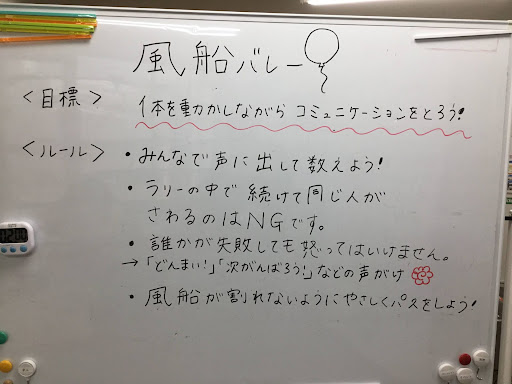 風船バレー
<目標>
体を動かしながら コミュニケーションをとろう!
<ルール>
・みんなで声に出して数えよう!
・ラリーの中で続けて同じ人が
さわるのはNGです。
・誰かが失敗しても怒ってはいけません。
→「どんまい!」「次がんばろう!」などの声がけ
・風船が割れないようにやさしくパスをしよう!